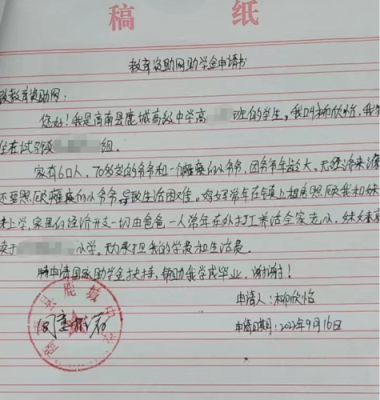 稿 纸
教育资助网助学金申请书
教育资助网:
您好!我是商南县鹿城高级中学高 班的学生,我叫柳欣怡,我
住在试马 组.
家有6口人,70多岁的爷爷和一个瘫痪的爷爷,因爷爷年龄大,无经济来源
还要照顾瘫痪的爷爷,导致生活困难.妈妈常年在镇上租房照顾我和妹
妹上学,家里的经济开支一切由爸爸一人常年在外打工养活全家老小,妹妹
读于 小学.无力承担我的学费和生活费
特申请国家助学金扶持,帮助我学成毕业,谢谢!
申请人:柳欣怡
申请日期:2022年9月16日
县鹿城